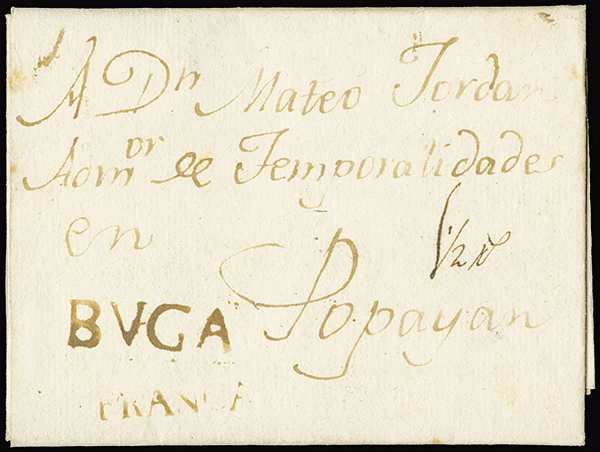 A Dn Mateo Jordan
Aomor de Temporalidades
en
1/2 r
Popayan
BVGA
FRANCA